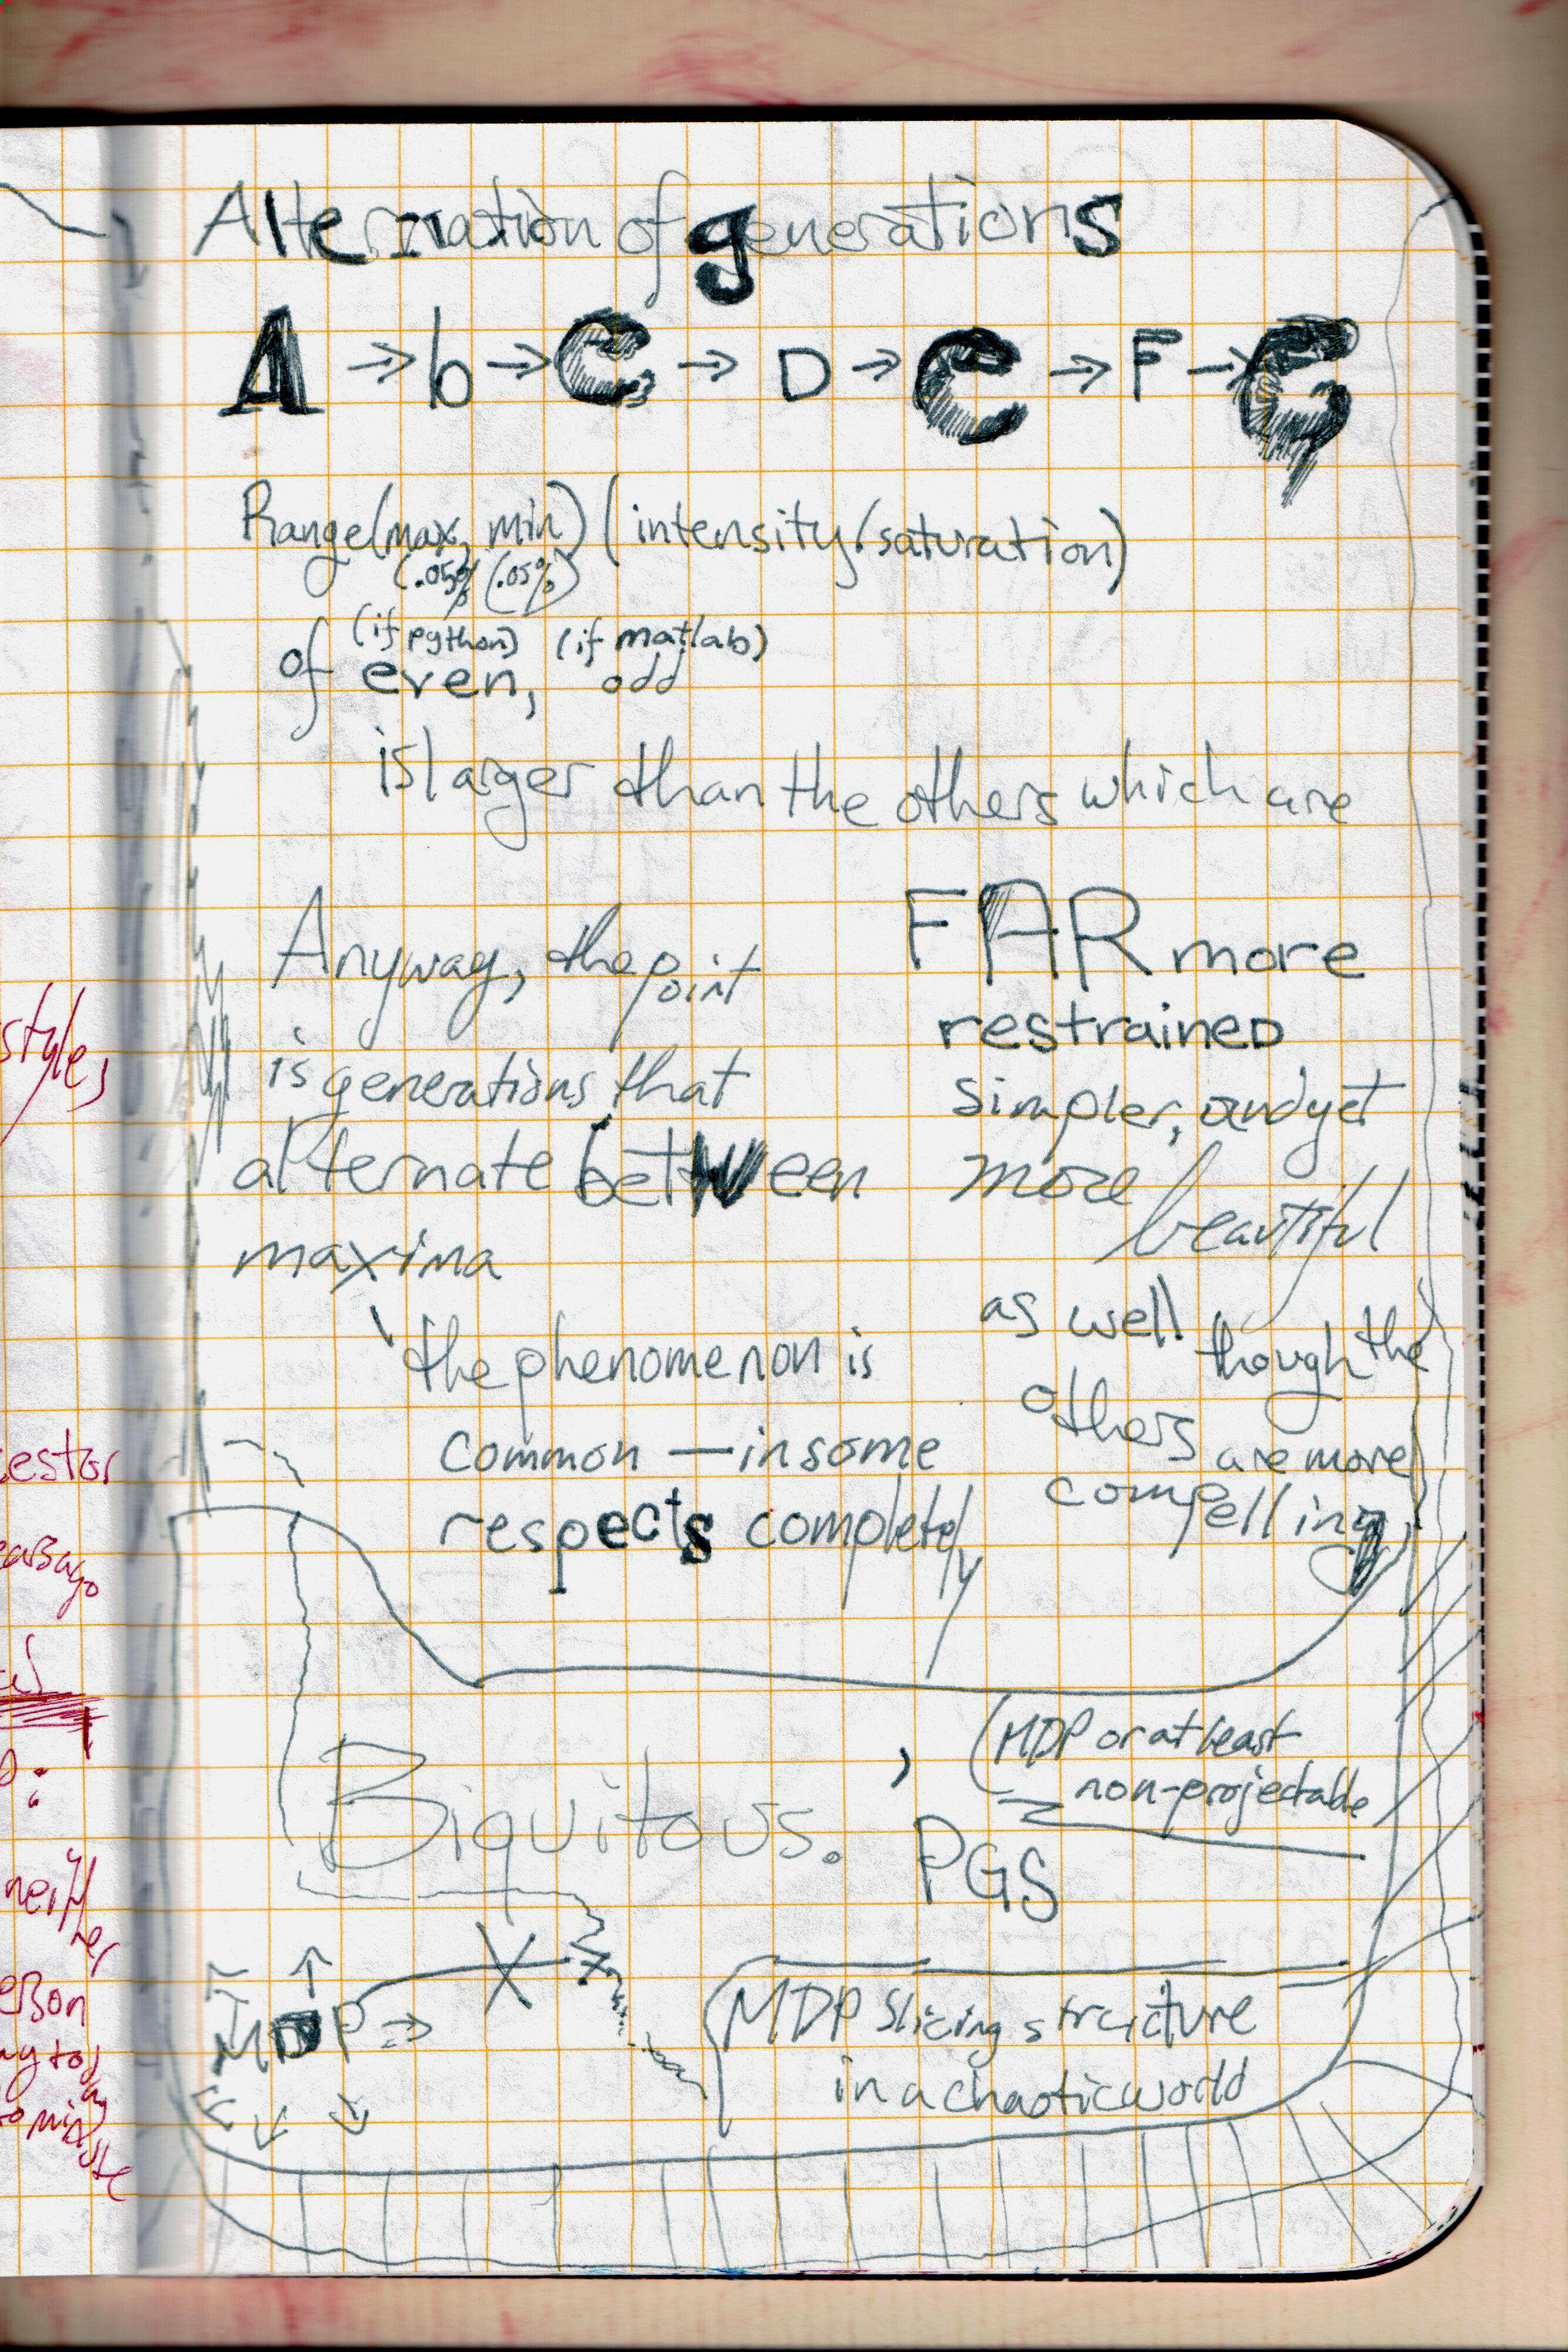 Alternation of generations
A → b → C → D → e → F → G
Range(max, min) (intensity/saturation)
(.05%) (.05%)
(if python) (if matlab)
of even, odd
is larger than the others which are
FAR more
restrained
simpler, and yet
more
beautiful
as well though the
others are more
compelling
Anyway, the point
is generations that
alternate between
maxima
the phenomenon is
common — in some
respects completely
Biquitous.
, (MDP or at least
non-projectable
PGS
MDP →
MDP slicing structure
in a chaotic world
styles
estor
neither
erson